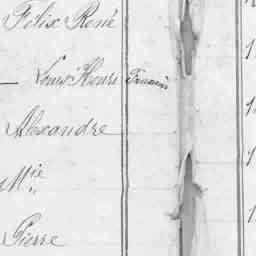 Felix René
— Louis Henri
Alexandre
Mie
Pierre